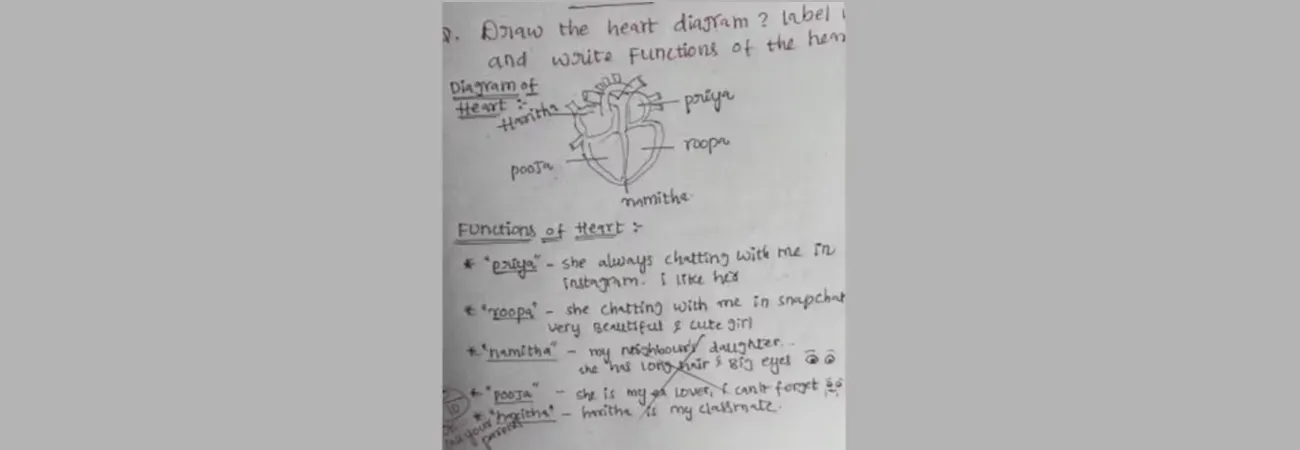 Q. Draw the heart diagram? Label
and write Functions of the
Diagram of
Heart :-
Haritha
priya
pooja
roopa
namitha
Functions of Heart :-
* "priya" - she always chatting with me in
instagram. i like her
* "roopa" - she chatting with me in snapchat
very Beautiful & cute girl
* "namitha" - my neighbour's daughter...
she has long hair & Big eyes
* "pooja" - she is my ex lover, i can't forget
* "haritha" - haritha is my classmate.
10
your
parents